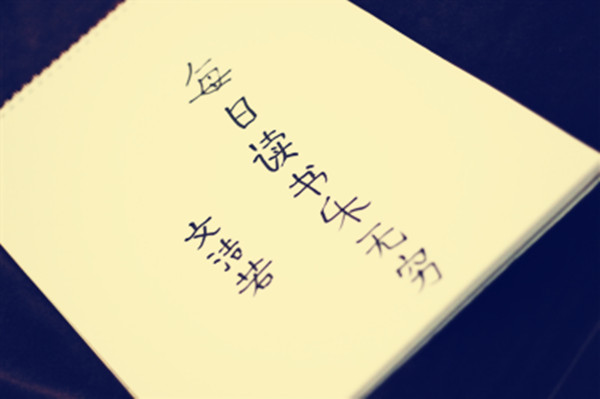 每日读书乐无穷
文洁若